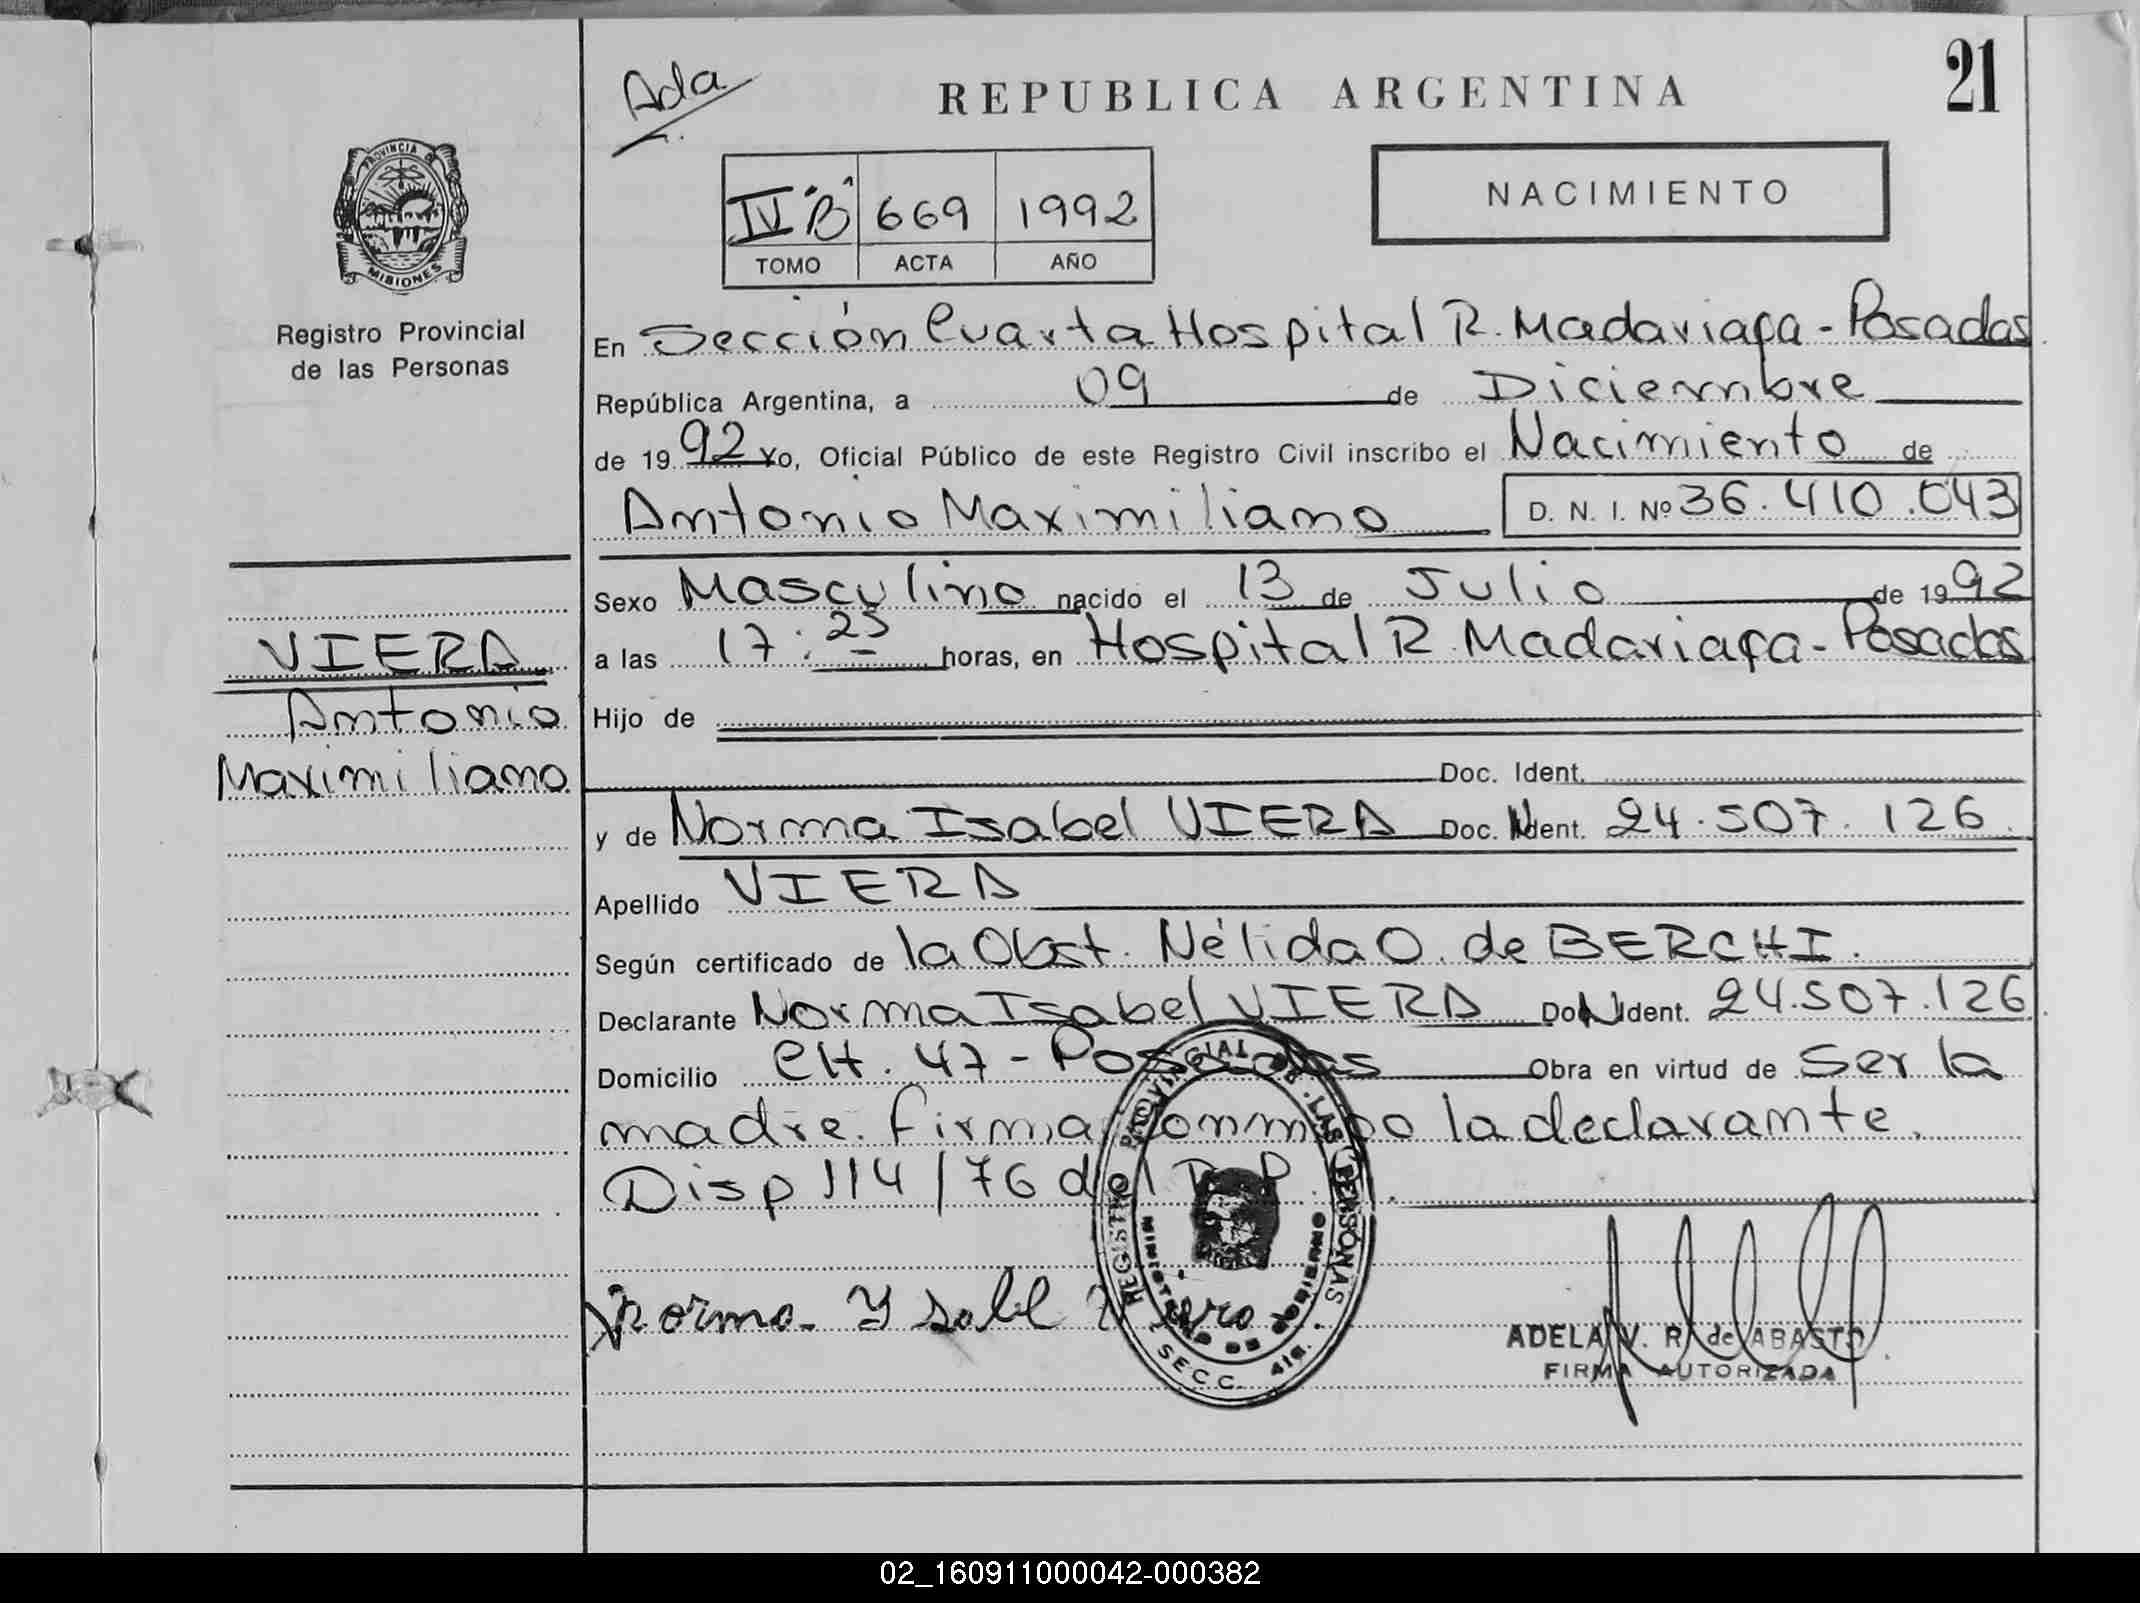 Ada
REPUBLICA ARGENTINA
21
PROVINCIA DE MISIONES
Registro Provincial
de las Personas
IV "B" 669 1992
TOMO ACTA AÑO
NACIMIENTO
En Sección Cuarta Hospital R. Madariaga - Posadas
República Argentina, a 09 de Diciembre
de 1992 Yo, Oficial Público de este Registro Civil inscribo el Nacimiento de
Antonio Maximiliano D. N. I. Nº 36.410.043
Sexo Masculino nacido el 13 de Julio de 1992
a las 17:25 horas, en Hospital R. Madariaga - Posadas
VIERA
Antonio
Maximiliano
Hijo de
Doc. Ident.
y de Norma Isabel VIERA Doc. Ident. 24.507.126
Apellido VIERA
Según certificado de la Obst. Nélida O. de BERCHI.
Declarante Norma Isabel VIERA Doc. Ident. 24.507.126
Domicilio CH. 47 - Posadas Obra en virtud de Ser la
madre. Firma conmigo la declarante.
Disp 114/76 del R. P.
Norma Ysabel Viera
REGISTRO PROVINCIAL DE LAS PERSONAS
MINISTERIO DE GOBIERNO
SECC. 4ta.
ADELA V. R. de ABASTO
FIRMA AUTORIZADA
02_160911000042-000382